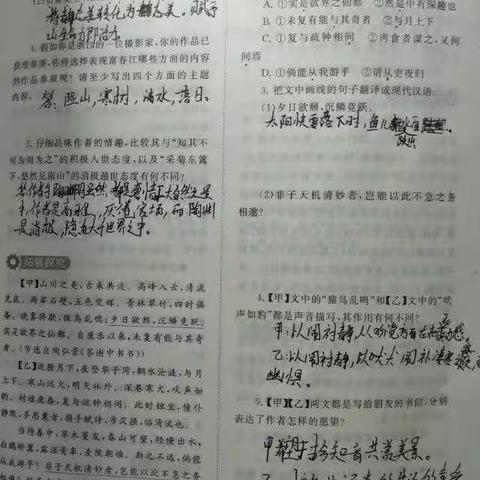 将静态美转化为静态美，赋予
4.假如你是浙江的一位摄影家，你的作品已
获准参展，你将选择表现富春江哪些方面的内容
的作品参展呢？请至少写出四个方面的主题
内容。
答：险山，寒树，清水，落日。
5.仔细品味作者的情趣，比较其与“知其不
可为而为之”的积极入世态度，以及“采菊东篱
下，悠然见南山”的消极遁世态度有何不同？
是消极，隐在人世界之中。
拓展探究
【甲】山川之美，古来共谈。高峰入云，清流
见底。两岸石壁，五色交辉。青林翠竹，四时俱
备。晓雾将歇，猿鸟乱鸣；夕日欲颓，沉鳞竞跃。
实是欲界之仙都。自康乐以来，未复有能与其奇
者。（节选自陶弘景《答谢中书书》）
【乙】近腊月下，
夜登华子冈，辋水沦涟，与月
上下。寒山远火，明灭林外。深巷寒犬，吠声如
豹。村墟夜舂，复与疏钟相间。此时独坐，僮仆
静默，多思曩昔，携手赋诗，步仄径，临清流也。
当待春中，草木蔓发，春山可望，轻鲦出水，
白鸥矫翼，露湿青皋，麦陇朝雊，斯之不远，倘能
从我游乎？非子天机清妙者，岂能以此不急之务
A.①实是欲界之仙都 ②然是中有深趣也
B.①未复有能与其奇者 ②与月上下
C.①复与疏钟相间 ②肉食者谋之，又何
间焉
D.①倘能从我游乎 ②请从吏夜归
3.把文中画线的句子翻译成现代汉语。
(1)夕日欲颓，沉鳞竞跃。
太阳快要落下时，鱼儿
跃出
(2)非子天机清妙者，岂能以此不急之务
相邀？
4.【甲】文中的“猿鸟乱鸣”和【乙】文中的“吠
声如豹”都是声音描写，其作用有何不同？
甲：以闹衬静，
乙：以闹衬静，以吠犬
幽惧。
5.【甲】【乙】两文都是写给朋友的书信，分别
表达了作者怎样的愿望？
甲：与知音共赏美景。